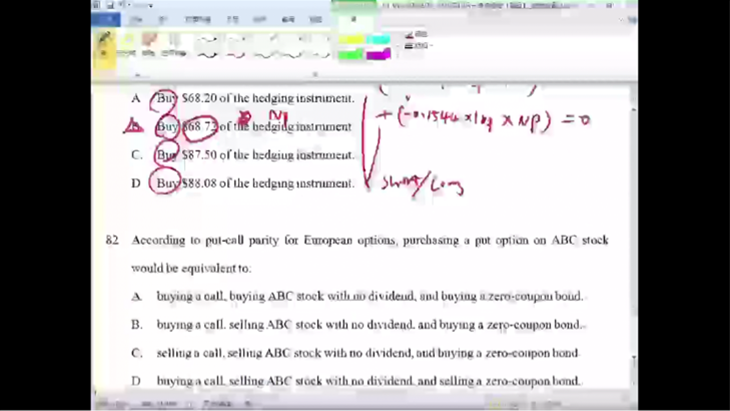 A Buy $68.20 of the hedging instrument.
B Buy $68.72 of the hedging instrument
NP
+ (-0.1544 × 109 × NP) = 0
C. Buy $87.50 of the hedging instrument.
D Buy $88.08 of the hedging instrument.
short/Long
82 According to put-call parity for European options, purchasing a put option on ABC stock
would be equivalent to:
A. buying a call, buying ABC stock with no dividend, and buying a zero-coupon bond.
B. buying a call. selling ABC stock with no dividend. and buying a zero-coupon bond.
C. selling a call, selling ABC stock with no dividend, and buying a zero-coupon bond
D buying a call, selling ABC stock with no dividend, and selling a zero-coupon bond.